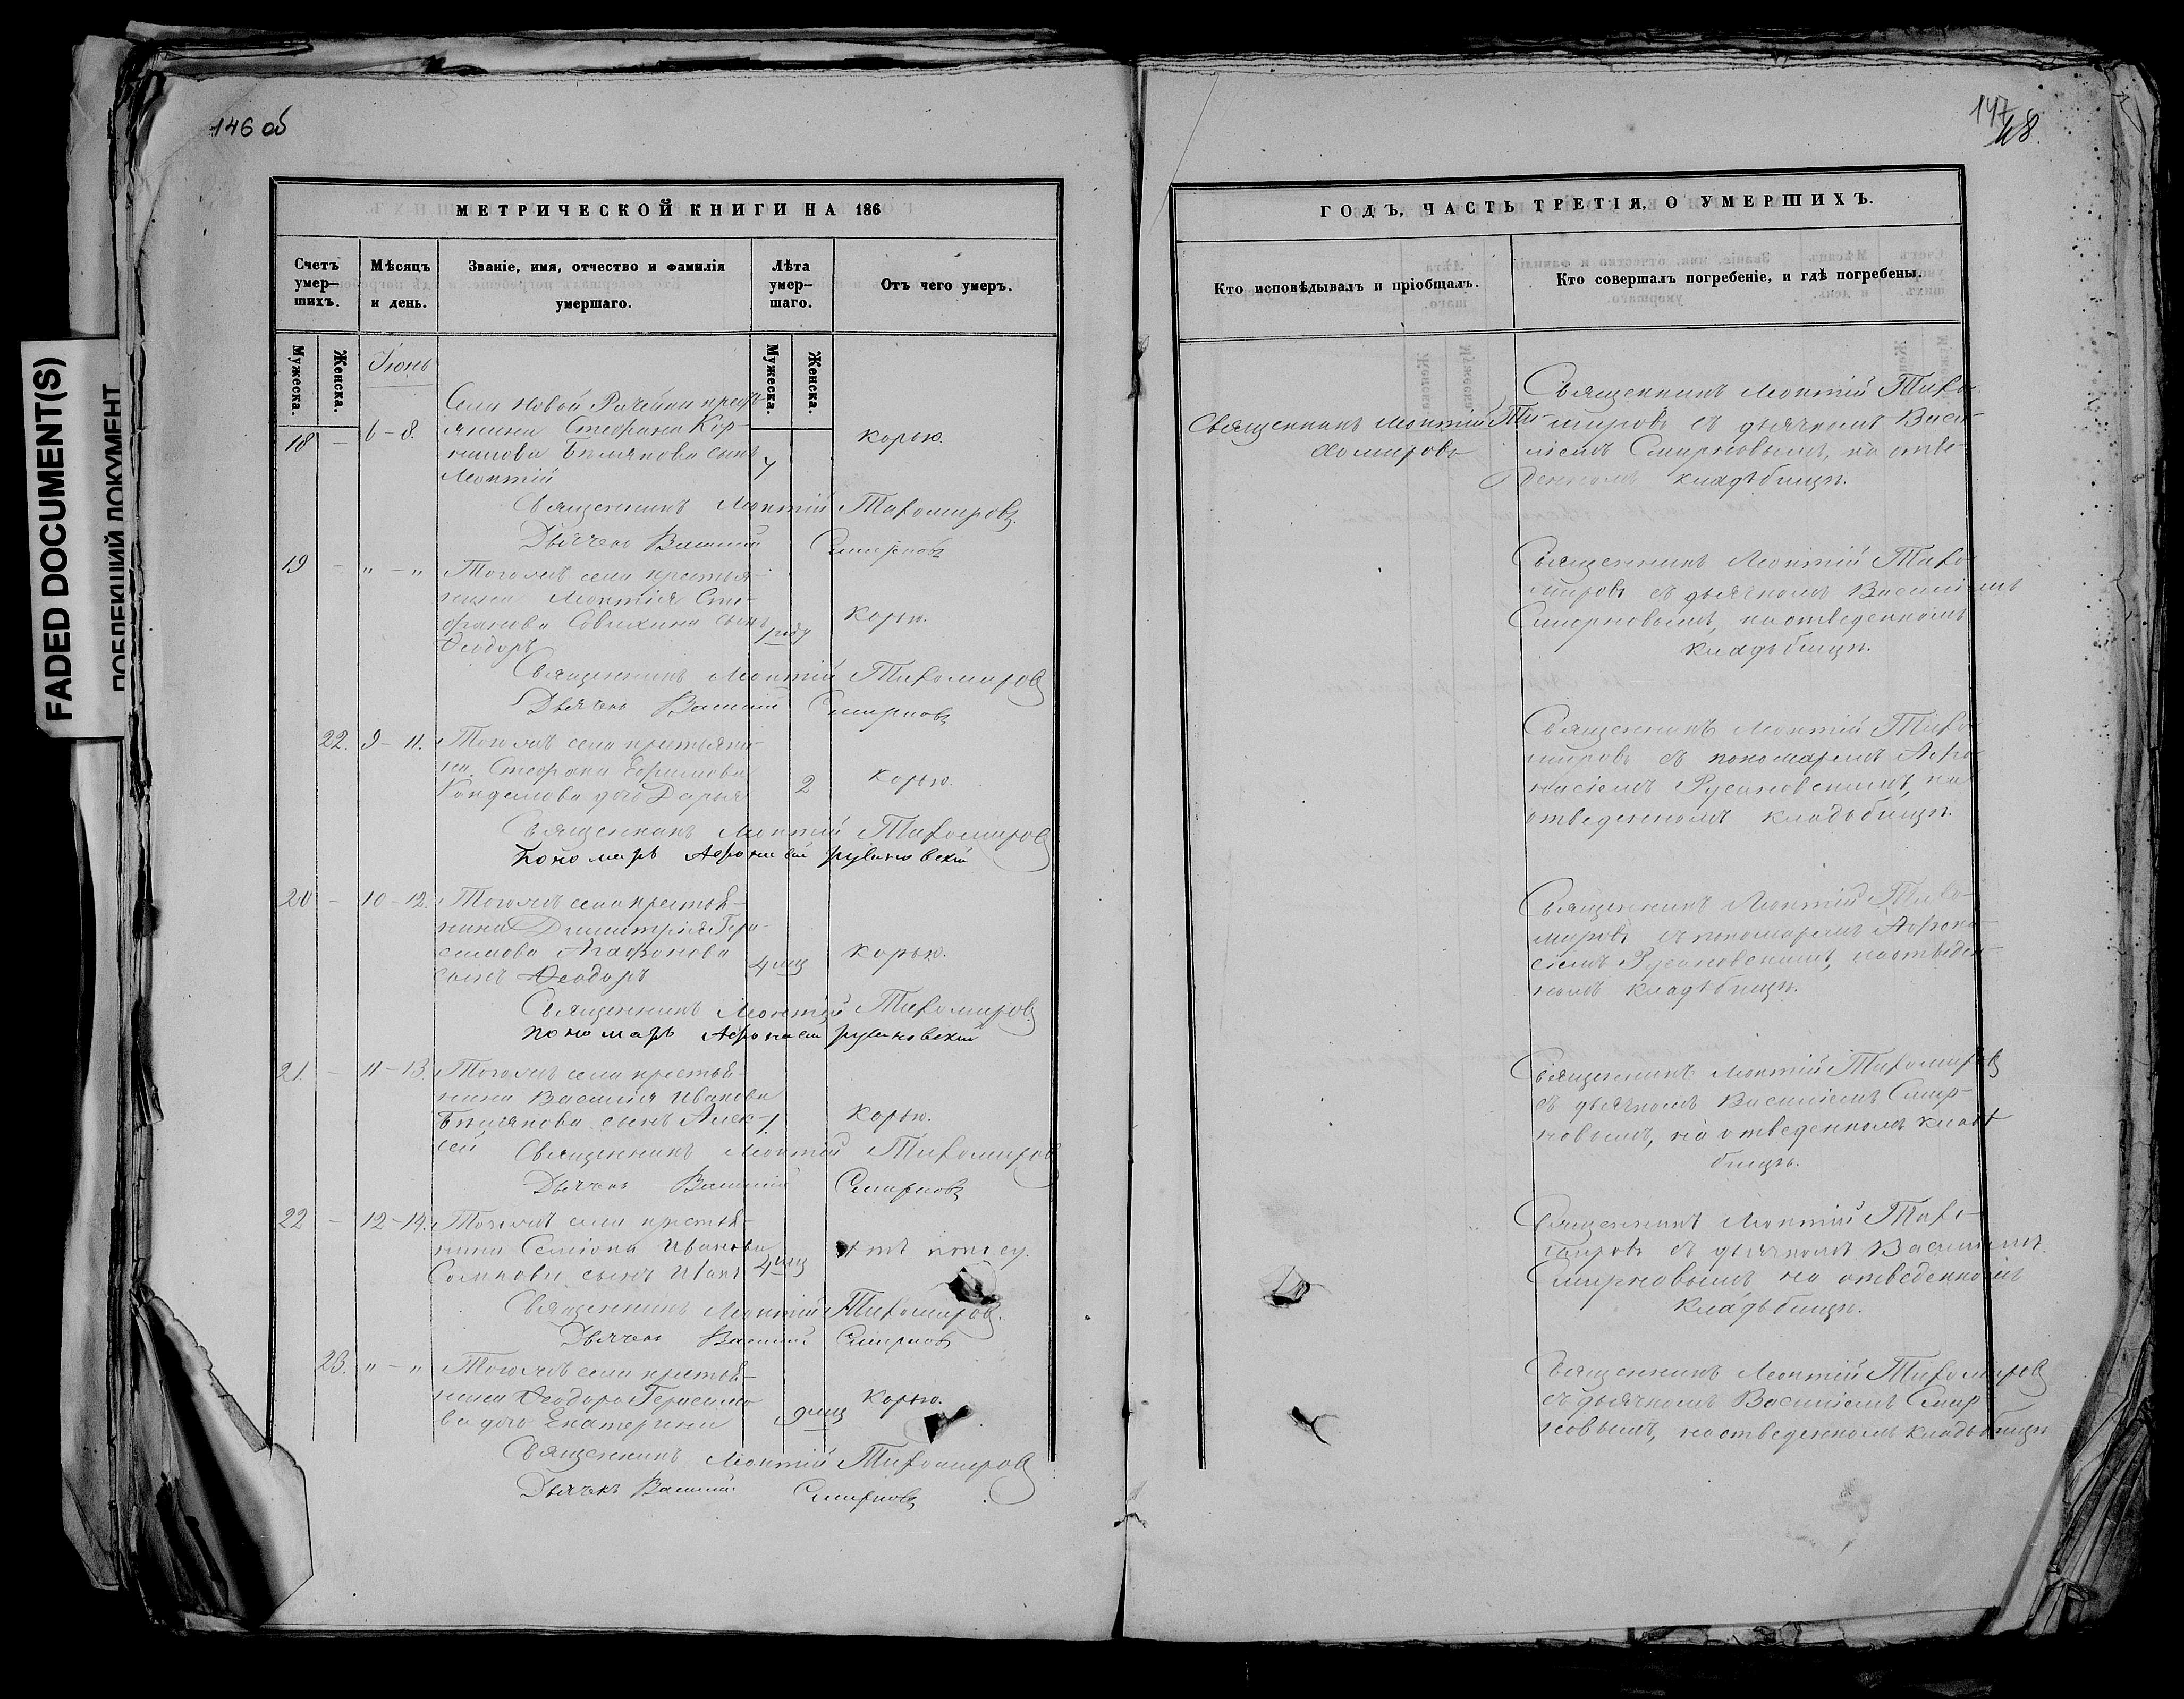 146 об
147
148.
FADED DOCUMENT(S)
ПОБЛЕКШИЙ ДОКУМЕНТ
МЕТРИЧЕСКОЙ КНИГИ НА 186
Счетъ умер-шихъ.
Мѣсяцъ и день.
Званіе, имя, отчество и фамилія умершаго.
Лѣта умер-шаго.
Отъ чего умеръ.
Мужеска.
Женска.
Іюнь
Мужеска.
Женска.
Села Новой Рачейки крестъ-
18 — 6 – 8. янина Стефана Кор- корью.
нилова Бѣлякова сынъ 7
Леонтій
Священникъ Леонтій Тихомировъ.
Дьячекъ Василій Смирновъ
19 — " – " Тогожъ села крестья-
нина Леонтія Сте-
фанова сынъ 1 году корью.
Ѳеодоръ
Священникъ Леонтій Тихомировъ
Дьячекъ Василій Смирновъ
22. 9 – 11. Тогожъ села крестьяни-
на Стефана Ефимова 2 корью.
дочь Дарья
Священникъ Леонтій Тихомировъ
Пономарь Афонасій Русановскій
20 — 10 – 12. Тогожъ села крестья-
нина Димитрія Гера-
симова Агафонова 4 мц корью.
сынъ Ѳеодоръ
Священникъ Леонтій Тихомировъ
Пономарь Афонасій Русановскій
21. — 11 – 13. Тогожъ села крестья-
нина Василія Иванова
Бѣлякова сынъ Алек- 1. корью.
сей
Священникъ Леонтій Тихомировъ
Дьячекъ Василій Смирновъ
22 — 12 – 14. Тогожъ села крестья-
нина Семіона Иванова
сынъ Иванъ 4 мц отъ поносу.
Священникъ Леонтій Тихомировъ.
Дьячекъ Василій Смирновъ
23. " – " Тогожъ села крестья-
нина Ѳеодора Герасимо- корью.
ва дочь Екатерина 9 мц
Священникъ Леонтій Тихомировъ
Дьячекъ Василій Смирновъ
ГОДЪ, ЧАСТЬ ТРЕТІЯ, О УМЕРШИХЪ.
Кто исповѣдывалъ и пріобщалъ.
Кто совершалъ погребеніе, и гдѣ погребены.
Священникъ Леонтій Ти-
хомировъ
Священникъ Леонтій Тихо-
мировъ съ дьячкомъ Васи-
ліемъ Смирновымъ, на отве-
денномъ кладбищѣ.
Священникъ Леонтій Тихо-
мировъ съ дьячкомъ Василіемъ
Смирновымъ, на отведенномъ
кладбищѣ.
Священникъ Леонтій Тихо-
мировъ съ пономаремъ Афо-
насіемъ Русановскимъ, на
отведенномъ кладбищѣ.
Священникъ Леонтій Тихо-
мировъ съ пономаремъ Афона-
сіемъ Русановскимъ, на отведен-
номъ кладбищѣ.
Священникъ Леонтій Тихомировъ
съ дьячкомъ Василіемъ Смир-
новымъ, на отведенномъ клад-
бищѣ.
Священникъ Леонтій Тихо-
мировъ съ дьячкомъ Василіемъ
Смирновымъ на отведенномъ
кладбищѣ.
Священникъ Леонтій Тихомировъ
съ дьячкомъ Василіемъ Смир-
новымъ, на отведенномъ кладбищѣ